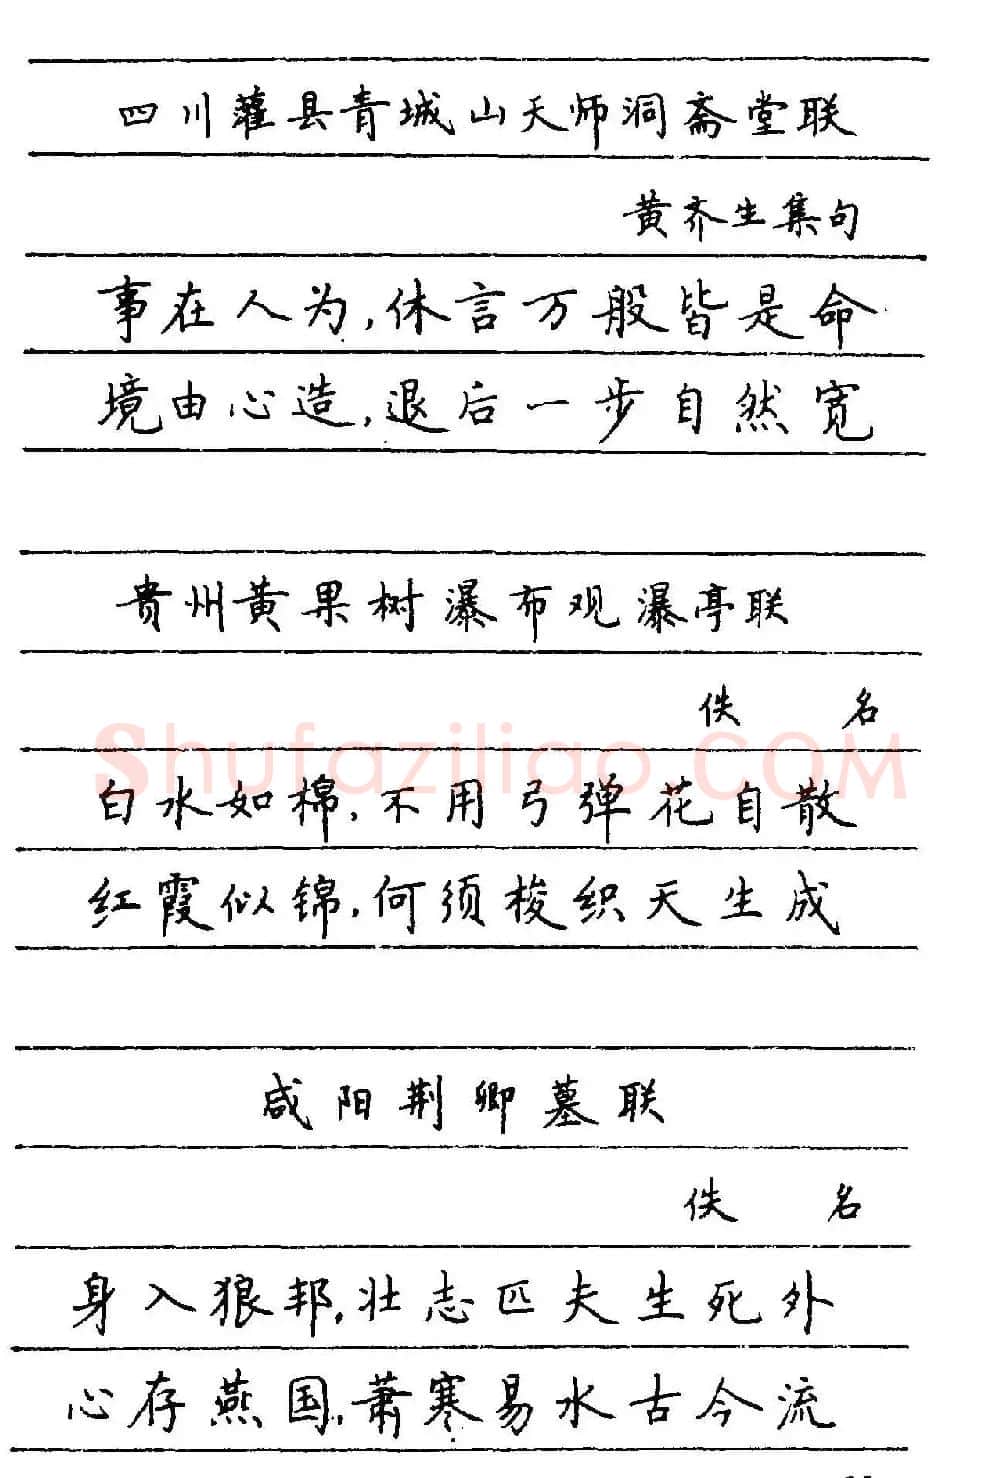 四川灌县青城山天师洞斋堂联
黄齐生集句
事在人为,休言万般皆是命
境由心造,退后一步自然宽
贵州黄果树瀑布观瀑亭联
佚 名
shufaziliao.COM
白水如棉,不用弓弹花自散
红霞似锦,何须梭织天生成
咸阳荆卿墓联
佚 名
身入狼邦,壮志匹夫生死外
心存燕国,萧寒易水古今流